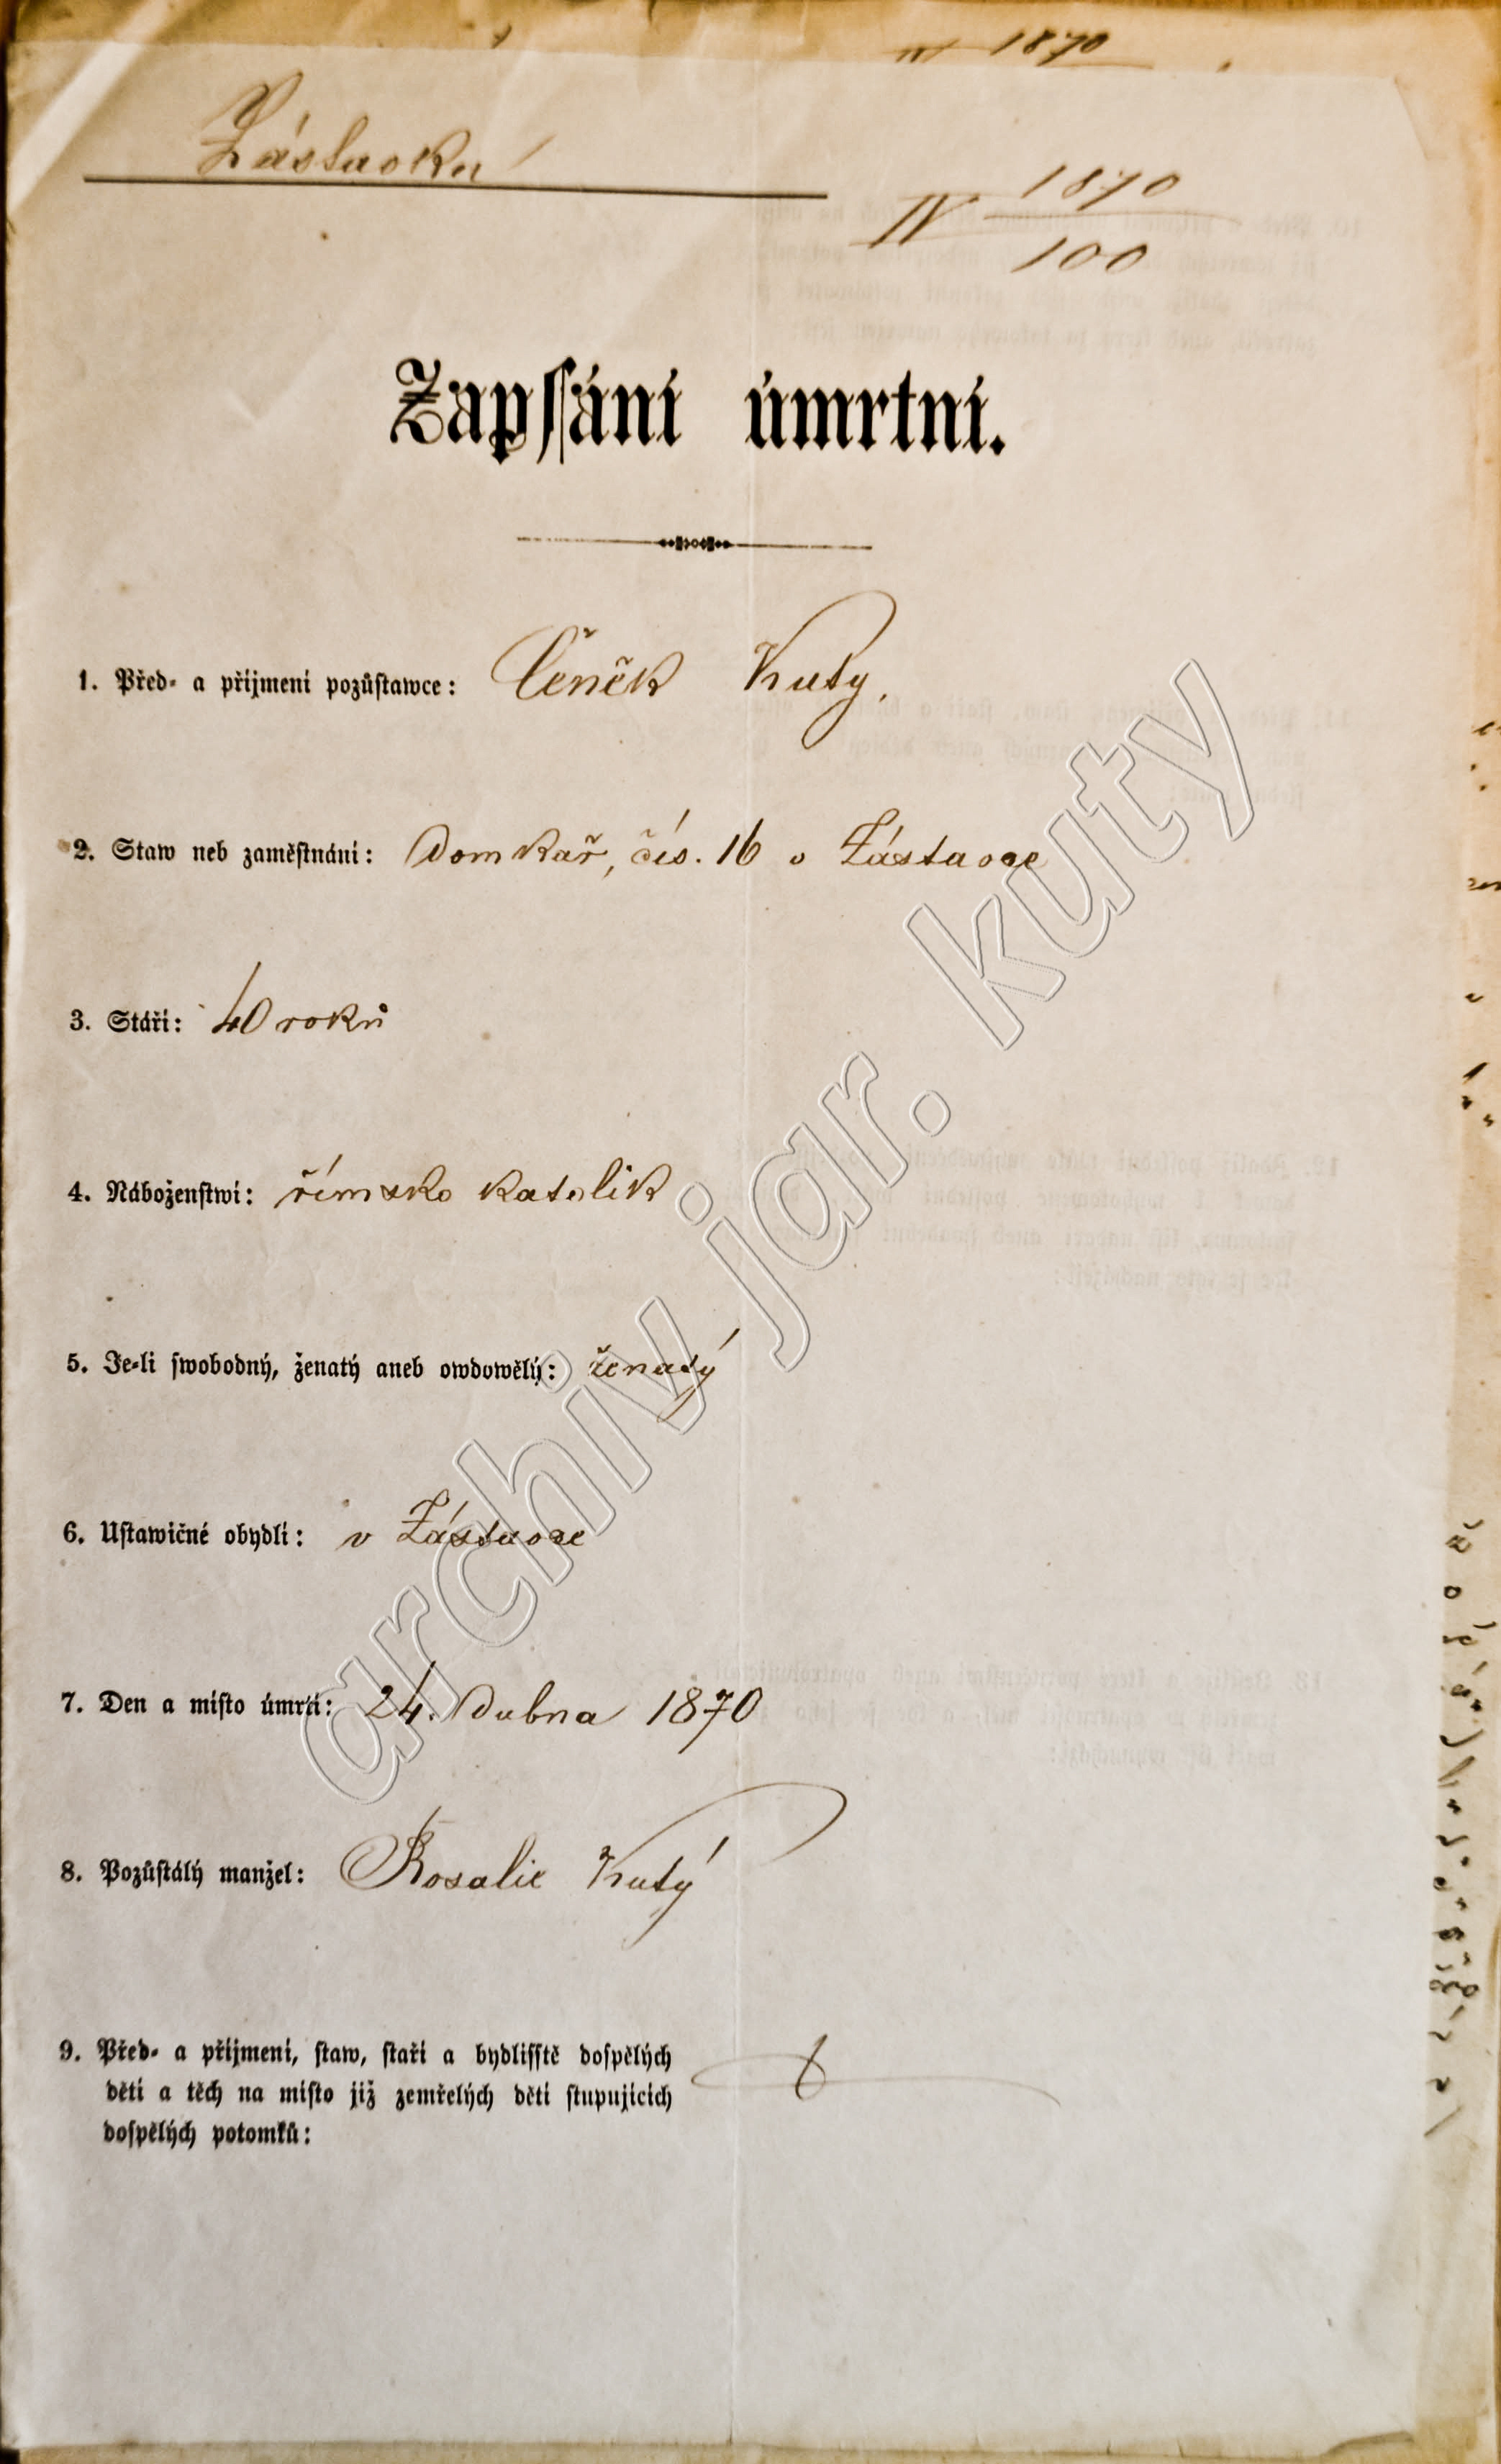 1870
IV 1870
100
Zapsání úmrtní.
1. Před- a příjmení pozůstawce: Čeněk Kuty.
2. Staw neb zaměstnání: Domkař, čís. 16 v Zástavce
3. Stáří: 40 roků
4. Náboženstwí: římsko katolik
5. Je-li swobodný, ženatý aneb owdowělý: ženatý
6. Ustawičné obydlí: v Zástavce
7. Den a místo úmrtí: 24. Dubna 1870
8. Pozůstálý manžel: Rosalie Kutý
9. Před- a příjmení, staw, staří a bydlisstě dospělých
dětí a těch na místo již zemřelých dětí stupujících
dospělých potomků:
archiv jar. kuty